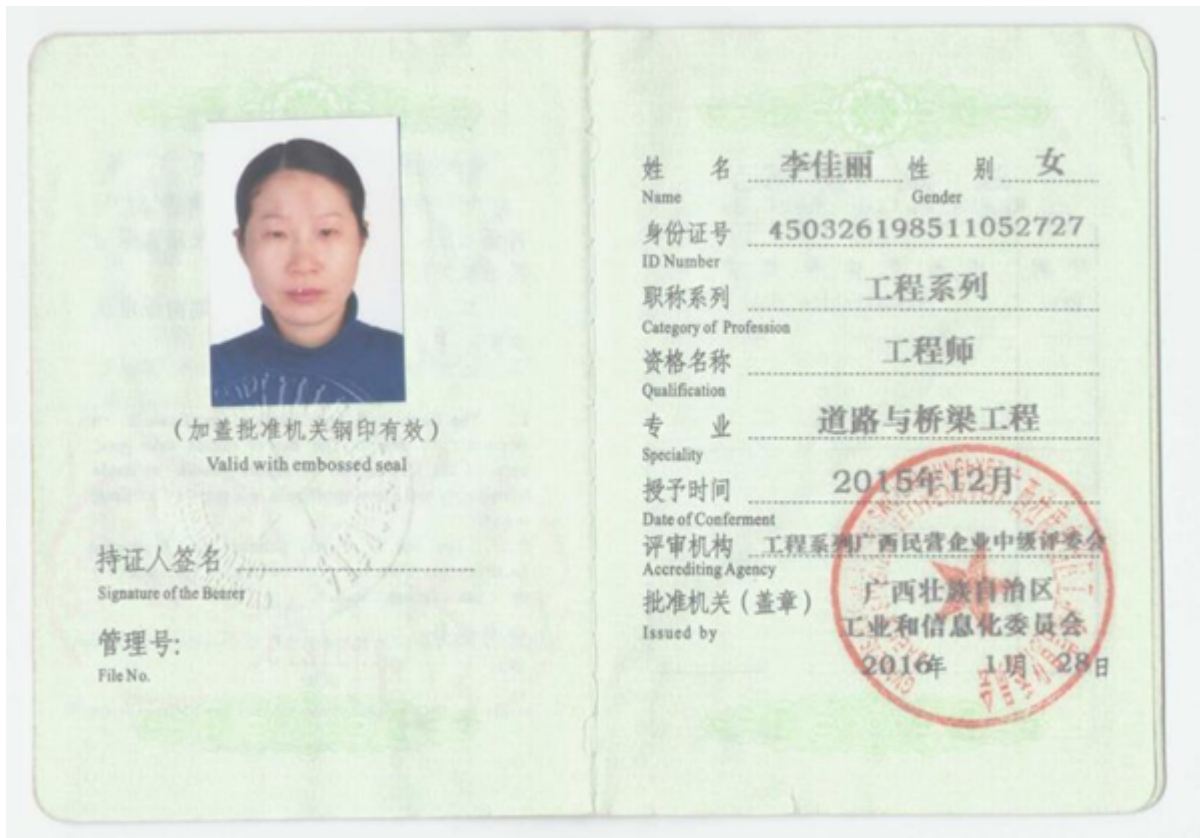 (加盖批准机关钢印有效)
Valid with embossed seal
持证人签名
Signature of the Bearer
管理号:
File No.
姓 名 李佳丽 性 别 女
Name Gender
身份证号 450326198511052727
ID Number
职称系列 工程系列
Category of Profession
资格名称 工程师
Qualification
专 业 道路与桥梁工程
Speciality
授予时间 2015年12月
Date of Conferment
评审机构 工程系列广西民营企业中级评委会
Accrediting Agency
批准机关(盖章) 广西壮族自治区
Issued by 工业和信息化委员会
2016年 1月 28日